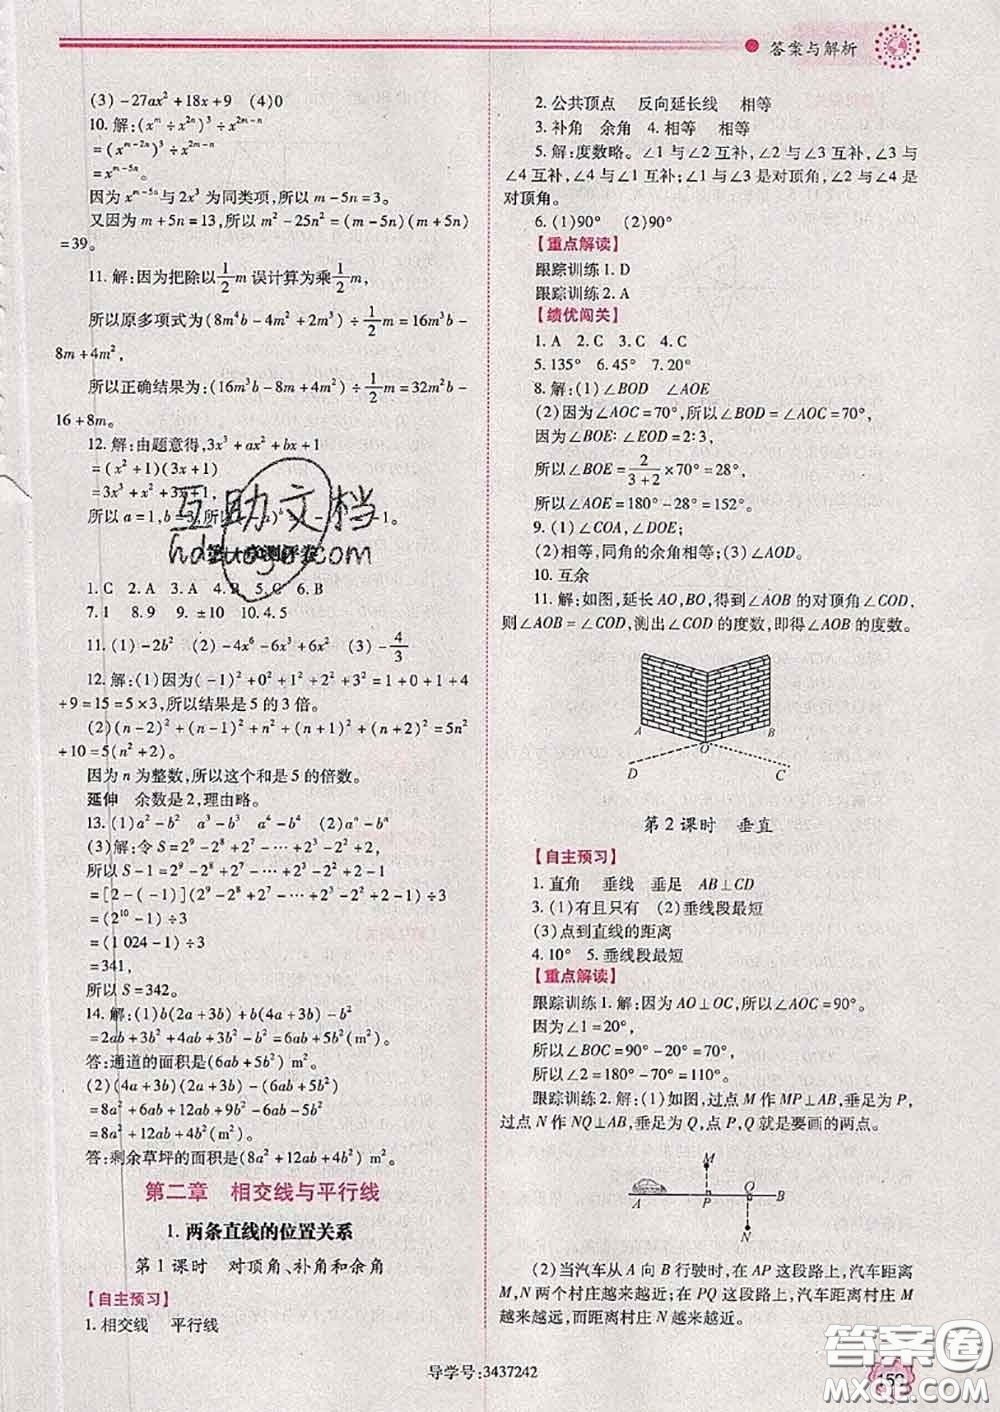 答案与解析
(3) -27ax²+18x+9 (4)0
10. 解:(xᵐ÷x²ⁿ)³÷x²ᵐ⁻ⁿ
=(xᵐ⁻²ⁿ)³÷x²ᵐ⁻ⁿ
=xᵐ⁻⁵ⁿ。
因为xᵐ⁻⁵ⁿ与2x³为同类项,所以m-5n=3。
又因为m+5n=13,所以m²-25n²=(m-5n)(m+5n)
=39。
11. 解:因为把除以1/2 m误计算为乘1/2 m,
所以原多项式为(8m⁴b-4m²+2m³)÷1/2 m=16m³b-
8m+4m²,
所以正确结果为:(16m³b-8m+4m²)÷1/2 m=32m²b-
16+8m。
12. 解:由题意得,3x³+ax²+bx+1
=(x²+1)(3x+1)
=3x³+x²+3x+1,
所以a=1,b=3,所以
1。
互助文档
hdzuoye.com
1. C 2. A 3. A 4. B 5. C 6. B
7. 1 8. 9 9. ±10 10. 4.5
11. (1)-2b² (2)-4x⁶-6x³+6x² (3)-4/3
12. 解:(1)因为(-1)²+0²+1²+2²+3²=1+0+1+4
+9=15=5×3,所以结果是5的3倍。
(2)(n-2)²+(n-1)²+n²+(n+1)²+(n+2)²=5n²
+10=5(n²+2)。
因为n为整数,所以这个和是5的倍数。
延伸 余数是2,理由略。
13. (1)a²-b² a³-b³ a⁴-b⁴ (2)aⁿ-bⁿ
(3)解:令S=2⁹-2⁸+2⁷-…+2³-2²+2,
所以S-1=2⁹-2⁸+2⁷-…+2³-2²+2-1
=[2-(-1)](2⁹-2⁸+2⁷-…+2³-2²+2-1)÷3
=(2¹⁰-1)÷3
=(1 024-1)÷3
=341,
所以S=342。
14. 解:(1)b(2a+3b)+b(4a+3b)-b²
=2ab+3b²+4ab+3b²-b²=6ab+5b²(m²)。
答:通道的面积是(6ab+5b²)m²。
(2)(4a+3b)(2a+3b)-(6ab+5b²)
=8a²+6ab+12ab+9b²-6ab-5b²
=8a²+12ab+4b²(m²)。
答:剩余草坪的面积是(8a²+12ab+4b²) m²。
第二章 相交线与平行线
1. 两条直线的位置关系
第1课时 对顶角、补角和余角
【自主预习】
1. 相交线 平行线
2. 公共顶点 反向延长线 相等
3. 补角 余角 4. 相等 相等
5. 解:度数略。∠1与∠2互补,∠2与∠3互补,∠3与
∠4互补,∠4与∠1互补;∠1与∠3是对顶角,∠2与∠4是
对顶角。
6. (1)90° (2)90°
【重点解读】
跟踪训练1. D
跟踪训练2. A
【绩优闯关】
1. A 2. C 3. C 4. C
5. 135° 6. 45° 7. 20°
8. 解:(1)∠BOD ∠AOE
(2)因为∠AOC=70°,所以∠BOD=∠AOC=70°,
因为∠BOE:∠EOD=2:3,
所以∠BOE=2/(3+2)×70°=28°,
所以∠AOE=180°-28°=152°。
9. (1)∠COA,∠DOE;
(2)相等,同角的余角相等;(3)∠AOB。
10. 互余
11. 解:如图,延长AO,BO,得到∠AOB的对顶角∠COD,
则∠AOB=∠COD,测出∠COD的度数,即得∠AOB的度数。
A B
O
D C
第2课时 垂直
【自主预习】
1. 直角 垂线 垂足 AB⊥CD
3. (1)有且只有 (2)垂线段最短
(3)点到直线的距离
4. 10° 5. 垂线段最短
【重点解读】
跟踪训练1. 解:因为AO⊥OC,所以∠AOC=90°。
因为∠1=20°,
所以∠BOC=90°-20°=70°,
所以∠2=180°-70°=110°。
跟踪训练2. 解:(1)如图,过点M作MP⊥AB,垂足为P,
过点N作NQ⊥AB,垂足为Q,点P,Q就是要画的两点。
M
A P Q B
N
(2)当汽车从A向B行驶时,在AP这段路上,汽车距离
M,N两个村庄越来越近;在PQ这段路上,汽车距离村庄M
越来越远,而距离村庄N越来越近。
导学号:3437242
159
答案圈
MXQE.COM